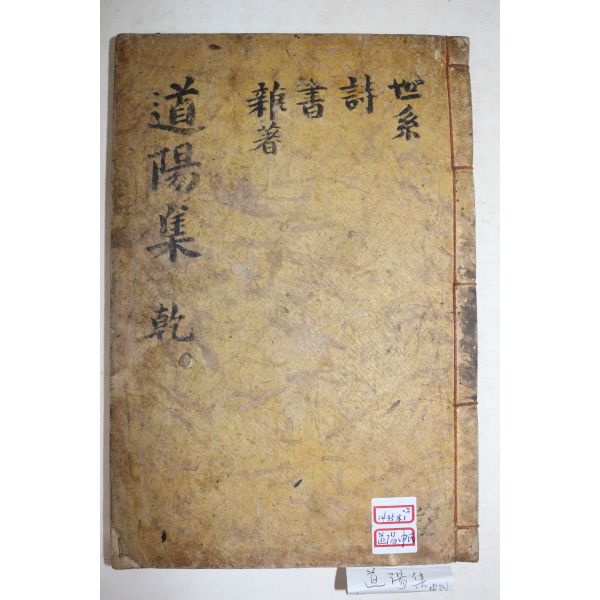 世系
詩
書
雜著
道陽集 乾
道陽集